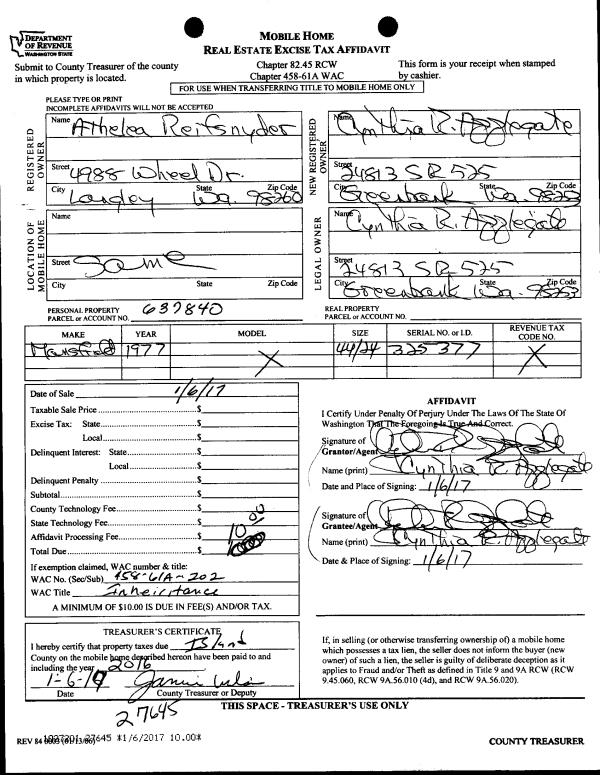 DEPARTMENT
OF REVENUE
WASHINGTON STATE
MOBILE HOME
REAL ESTATE EXCISE TAX AFFIDAVIT
Submit to County Treasurer of the county
in which property is located.
Chapter 82.45 RCW
Chapter 458-61A WAC
This form is your receipt when stamped
by cashier.
FOR USE WHEN TRANSFERRING TITLE TO MOBILE HOME ONLY
PLEASE TYPE OR PRINT
INCOMPLETE AFFIDAVITS WILL NOT BE ACCEPTED
REGISTERED OWNER
Name Athelea Reifsnyder
Street 4988 Wheel Dr.
City State Zip Code
Langley Wa. 98260
NEW REGISTERED OWNER
Name Cynthia R. Applegate
Street 24813 SR 525
City State Zip Code
Greenbank Wa. 98253
LOCATION OF MOBILE HOME
Name
Street Same
City State Zip Code
LEGAL OWNER
Name Cynthia R. Applegate
Street 24813 SR 525
City State Zip Code
Greenbank Wa. 98253
PERSONAL PROPERTY
PARCEL or ACCOUNT NO. 637840
REAL PROPERTY
PARCEL or ACCOUNT NO.
MAKE YEAR MODEL SIZE SERIAL NO. or I.D. REVENUE TAX CODE NO.
Mansfield 1977 X 44/24 325377 X
Date of Sale 1/6/17
Taxable Sale Price $
Excise Tax: State $
Local $
Delinquent Interest: State $
Local $
Delinquent Penalty $
Subtotal $
County Technology Fee $
State Technology Fee $
Affidavit Processing Fee $
Total Due $ 10.00
If exemption claimed, WAC number & title:
WAC No. (Sec/Sub) 458-61A-202
WAC Title Inheritance
A MINIMUM OF $10.00 IS DUE IN FEE(S) AND/OR TAX.
AFFIDAVIT
I Certify Under Penalty Of Perjury Under The Laws Of The State Of
Washington That The Foregoing Is True And Correct.
Signature of
Grantor/Agent
Name (print) Cynthia R. Applegate
Date and Place of Signing: 1/6/17
Signature of
Grantee/Agent
Name (print) Cynthia R. Applegate
Date & Place of Signing: 1/6/17
TREASURER'S CERTIFICATE
I hereby certify that property taxes due Island
County on the mobile home described hereon have been paid to and
including the year 2016
1-6-17
Date County Treasurer or Deputy
27645
If, in selling (or otherwise transferring ownership of) a mobile home
which possesses a tax lien, the seller does not inform the buyer (new
owner) of such a lien, the seller is guilty of deliberate deception as it
applies to Fraud and/or Theft as defined in Title 9 and 9A RCW (RCW
9.45.060, RCW 9A.56.010 (4d), and RCW 9A.56.020).
THIS SPACE - TREASURER'S USE ONLY
REV 84 27645 *1/6/2017 10.00*
COUNTY TREASURER